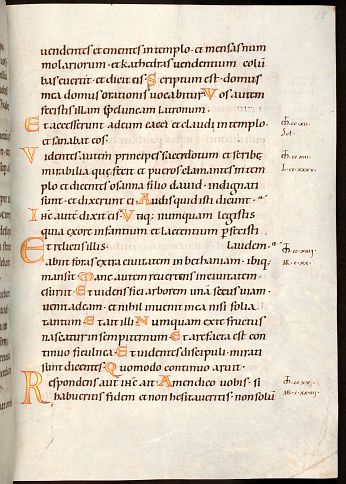 uendentes et ementes in templo · et mensas num
molariorum · et kathedras uendentium colū
bas euertit · et dicit eis · Scriptum est · domus
mea domus orationis uocabitur · Vos autem
fecistis illam speluncam latronum ·
Et accesserunt ad eum caeci et claudi in templo ·
et sanabat eos ·
Videntes autem principes sacerdotum et scribę
mirabilia quę fecit et pueros clamantes in tem
plo et dicentes osanna filio dauid · indignati
sunt · et dixerunt ei · Audis quid isti dicunt ·
Ihc autē dixit eis · Vtiq; numquam legistis
quia ex ore infantium et lactentium perfecisti
Et relictis illis laudem ·
abiit foras extra ciuitatem in bethaniam · ibiq;
mansit · Mane autem reuertens in ciuitatem ·
esuriit · Et uidens fici arborem unā secus uiam ·
uenit ad eam · et nihil inuenit in ea nisi folia
tantum · Et ait illi · Numquam ex te fructus
nascatur in sempiternum · Et arefacta est con
tinuo ficulnea · Et uidentes discipuli · mirati
sunt dicentes · Quomodo continuo aruit ·
Respondens aut ihc ait · Amen dico uobis · si
habueritis fidem et non hesitaueritis · non solū